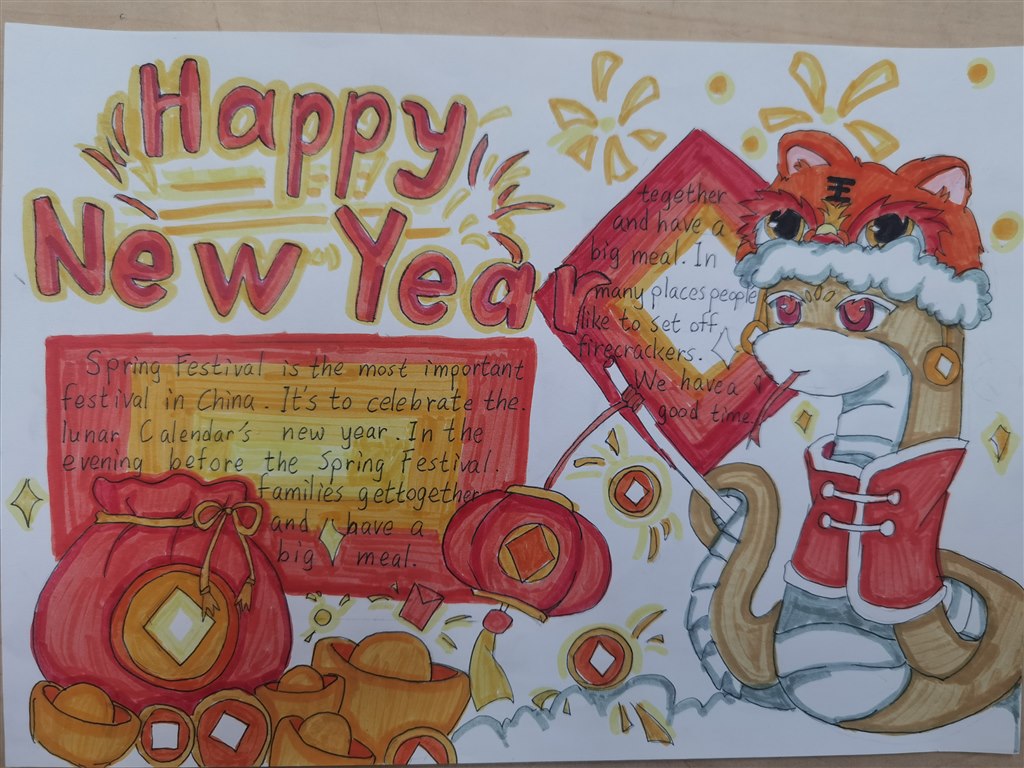 Happy
New Year
Spring Festival is the most important
festival in China. It's to celebrate the.
lunar Calendar's new year. In the
evening before the Spring Festival.
families gettogether
and have a
big meal.
tegether
and have a
big meal. In
many places people
like to set off
firecrackers.
We have a
good time.
王